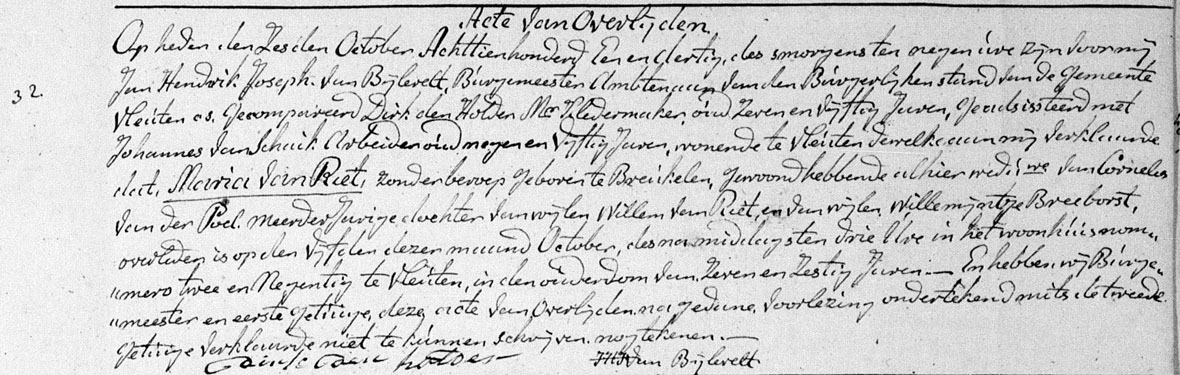 Acte van Overlyden
Op heden den Zesden October Achttienhonderd Een en dertig, des smorgens ten negen ure zyn voor my
32.
Jan Hendrik Joseph van Bylevelt, Burgemeester Ambtenaar van den Burgerlyken stand van de Gemeente
Vleuten cs. Gecompareerd Dirk den Holder Mr Kledermaker, oud Zeven en vyftig Jaren, Geadsisteerd met
Johannes van Schaik Arbeider oud negen en vyftig Jaren, wonende te Vleuten dewelke aan my verklaarde
dat, Maria van Riet, zonder beroep geboren te Breukelen, gewoond hebbende alhier wed: we van Cornelis
van der Poel. meerderjarige dochter van wylen Willem van Riet, en van wylen Willemyntje Breeborst,
overleden is op den vyfden dezer maand October, des na middags ten drie Ure in het woonhuis nom„
„mero twee en Negentig te Vleuten, in den ouderdom van Zeven en Zestig Jaren — En hebben wy Burge„
„meester en eerste getuige, deze acte van Overlyden na gedane voorlezing ondertekend mits de tweede
getuige verklaarde niet te kunnen schryven nog tekenen. —
den holder JHJ van Bylevelt